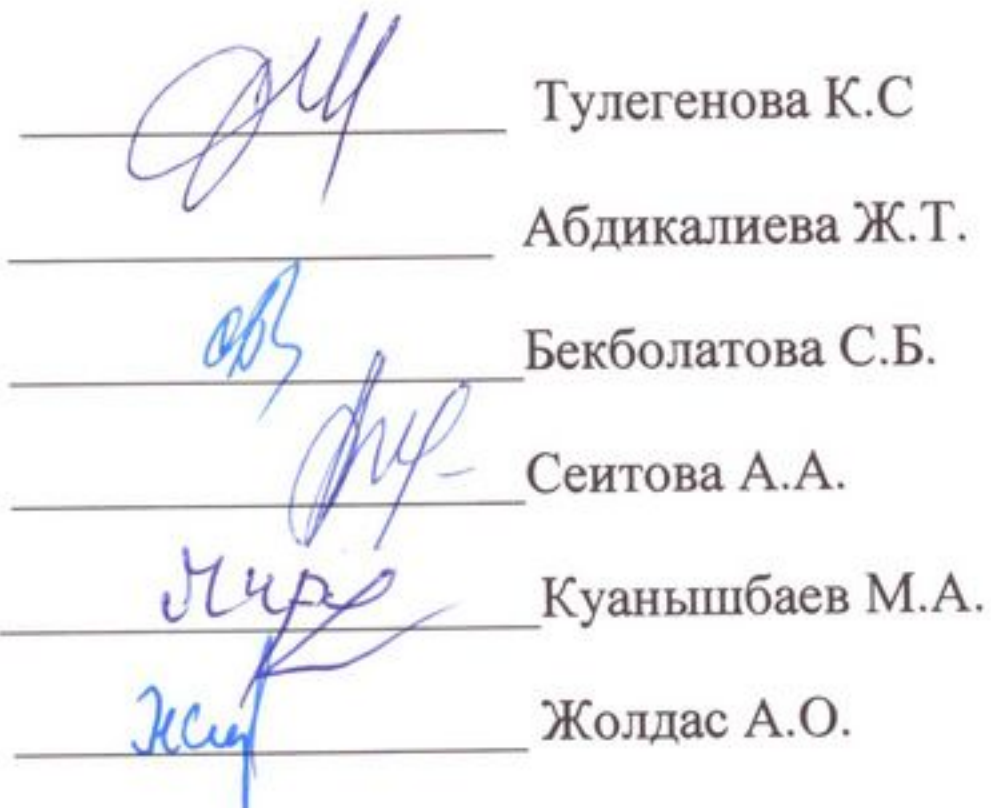 Тулегенова К.С
Абдикалиева Ж.Т.
Бекболатова С.Б.
Сеитова А.А.
Куанышбаев М.А.
Жолдас А.О.